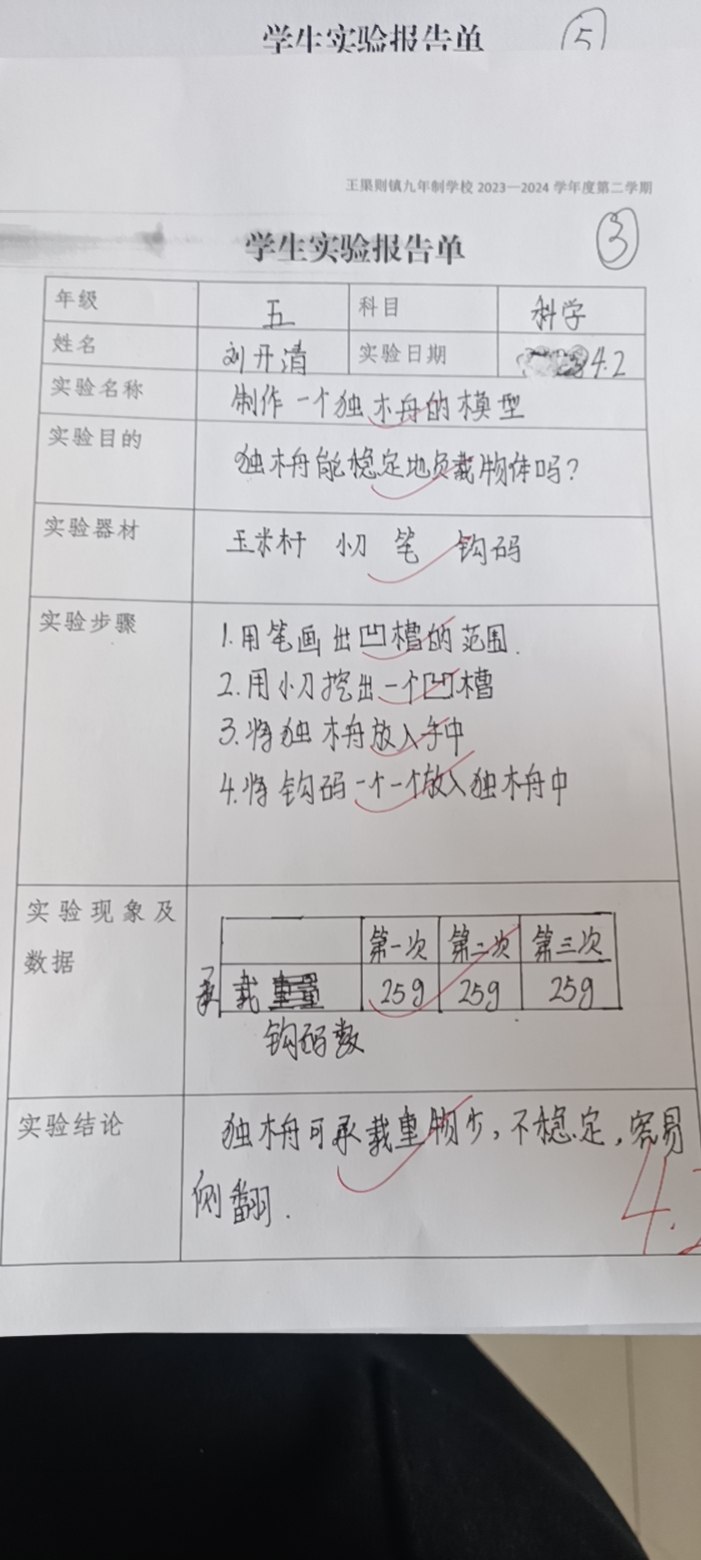 学生实验报告单 ⑤
王果则镇九年制学校 2023—2024 学年度第二学期
学生实验报告单 ③
年级 五 科目 科学
姓名 刘开清 实验日期 4.2
实验名称 制作一个独木舟的模型
实验目的 独木舟能稳定地负载物体吗？
实验器材 玉米杆 小刀 笔 钩码
实验步骤
1.用笔画出凹槽的范围.
2.用小刀挖出一个凹槽
3.将独木舟放入手中
4.将钩码一个一个放入独木舟中
实验现象及
数据
第一次 第二次 第三次
承载 25g 25g 25g
钩码数
实验结论 独木舟可承载重物少，不稳定，容易
侧翻.